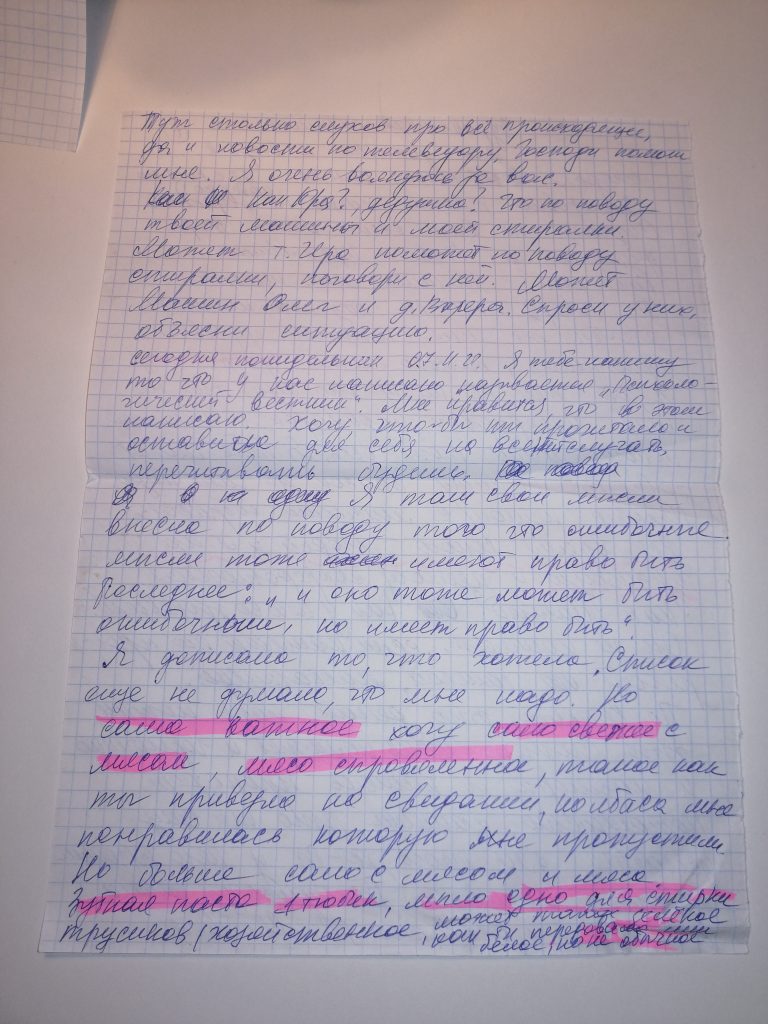 Тут столько слухов про всё происходящее,
да и новости по телевизору, Господи помоги
мне. Я очень волнуюсь за вас.
Как Юра?, дедушка? Что по поводу
твоей машины и моей стиралки.
Может т. Ира поможет по поводу
стиралки, поговори с ней. Может
Машин Олег и д. Валера. Спроси у них,
объясни ситуацию.
сегодня понидельник 07.11.22. Я тебе напишу
то что у нас написано называется „Психоло-
гический вестник". Мне нравится, что в этом
написано. Хочу, что-бы ты прочитала и
оставила для себя на всепит случать,
перечитывать будешь.
Я там свои мысли
внесла по поводу того что ошибочные
мысли тоже имеют право быть
Последнее: „и оно тоже может быть
ошибочным, но имеет право быть".
Я дописала то, что хотела. Список
еще не думала, что мне надо. Но
само важное хочу сало свежее с
мясом, мясо справленное, такое как
ты привезла на свидании, колбаса мне
понравилась которую мне пропустили
Но больше сало с мясом и мясо
Зубная паста 1 тюбик, мыло одно для стирки
трусиков/хозяйственное, может такое жидкое
как ты передовала
белое, но не обычное